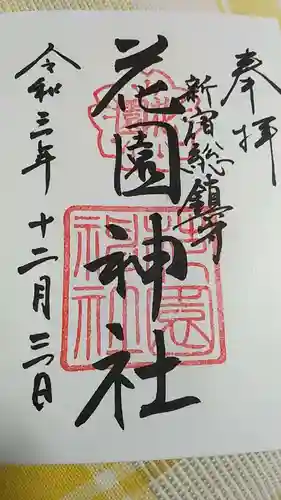 奉拝
新宿総鎮守
花園神社
令和三年十二月三日
花園神社